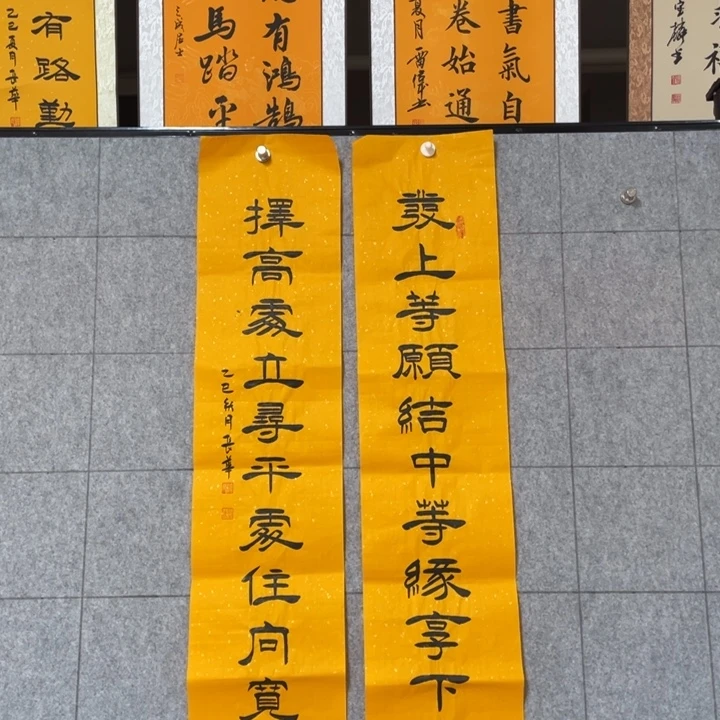 發上等願結中等緣享下
擇高處立尋平處住向寬
乙巳秋月長華
書氣自
卷始通
夏月
有鴻鵠
馬踏平
有路勤
乙巳夏月